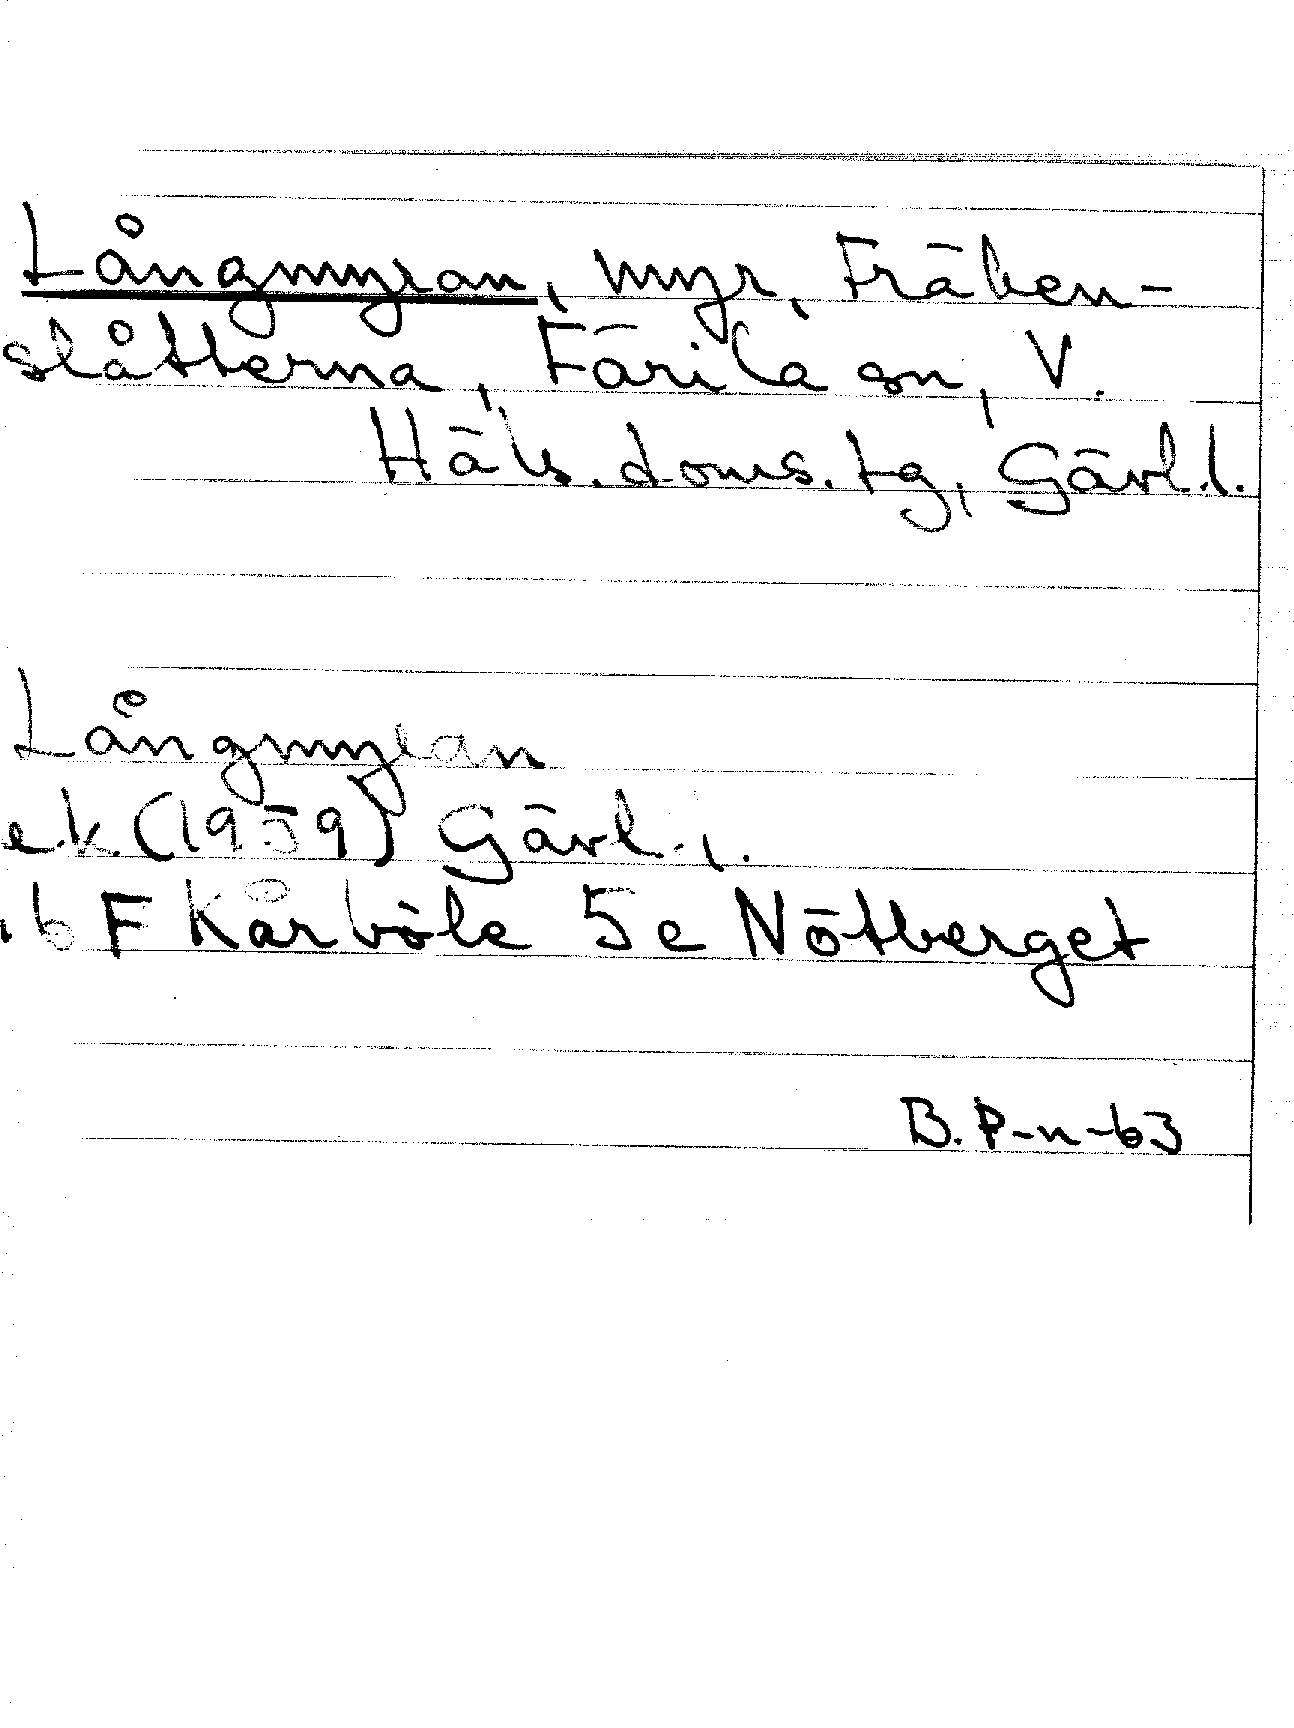 Långmyran, myr, Fräken-
slåtterna, Färila sn, V.
Häls. doms. tg, Gävl.l.
Långmyran
e.k. (1959) Gävl. l.
16 F Kårböle 5 e Nötberget
B. P-n-63